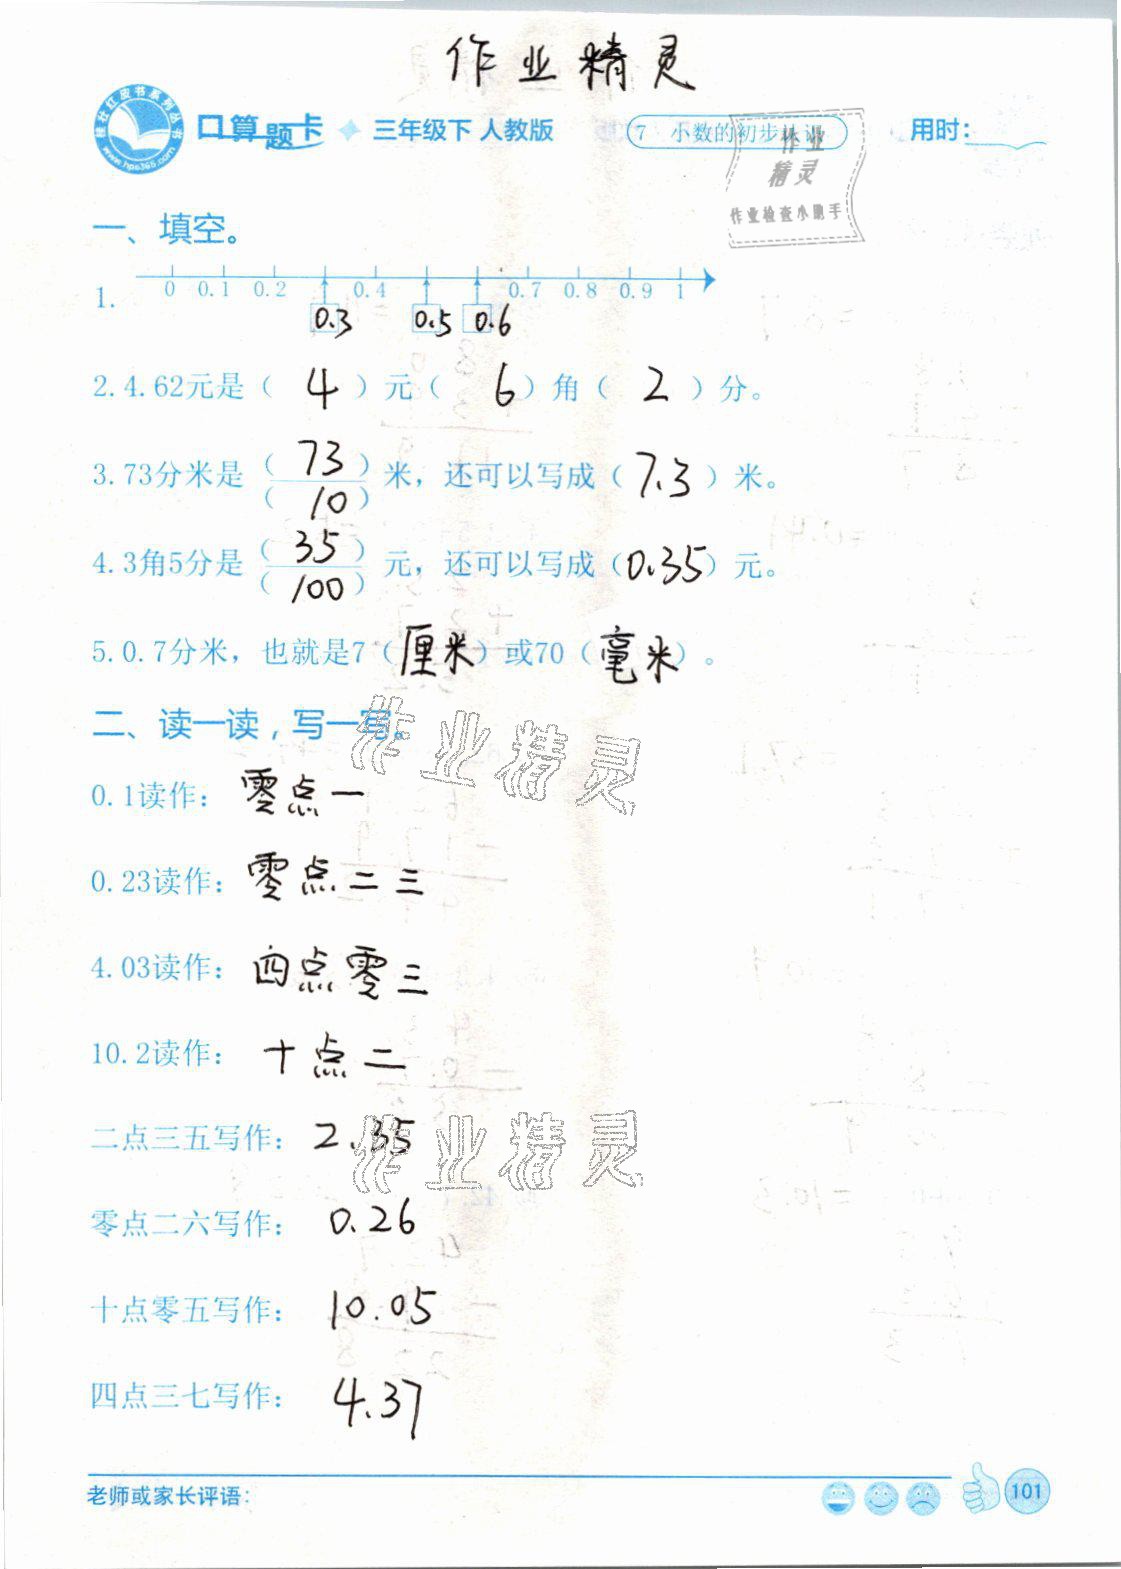 作业精灵
桂壮红皮书系列丛书
www.hps365.com
口算题卡 三年级下 人教版 7 小数的初步认识 用时：
作业
精灵
作业检查小助手
一、填空。
1. 0 0.1 0.2 0.4 0.7 0.8 0.9 1
0.3 0.5 0.6
2.4.62元是（ 4 ）元（ 6 ）角（ 2 ）分。
3.73分米是（ 73 ）/（ 10 ）米，还可以写成（ 7.3 ）米。
4.3角5分是（ 35 ）/（ 100 ）元，还可以写成（0.35）元。
5.0.7分米，也就是7（厘米）或70（毫米）。
二、读一读，写一写。
作业精灵
0.1读作：零点一
0.23读作：零点二三
4.03读作：四点零三
10.2读作：十点二
二点三五写作：2.35
作业精灵
零点二六写作：0.26
十点零五写作：10.05
四点三七写作：4.37
老师或家长评语：
101